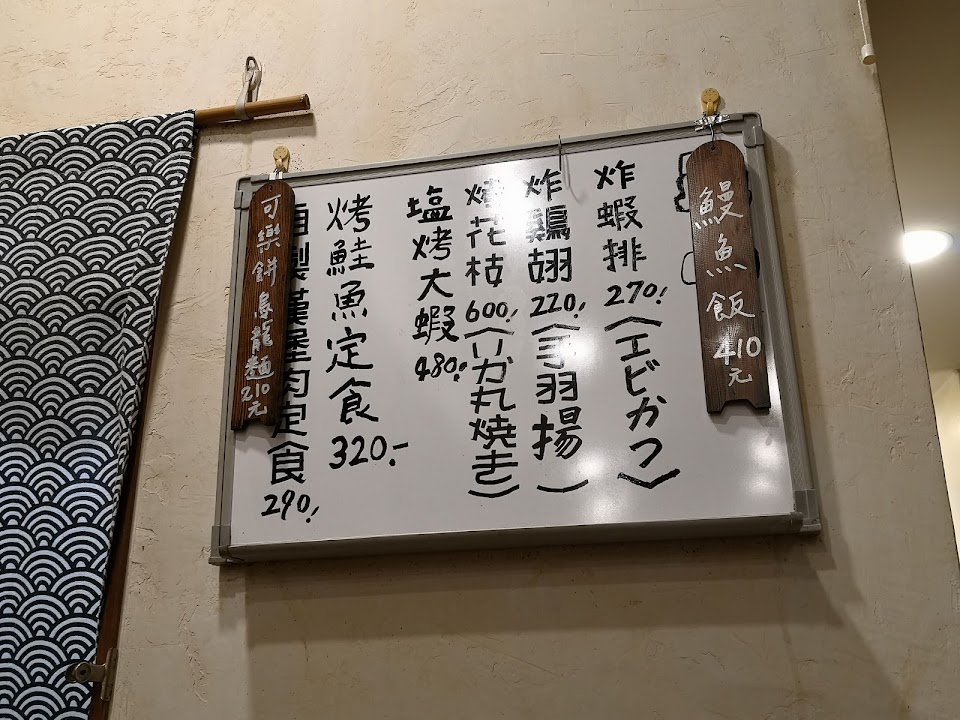 鰻魚飯 410元
炸蝦排 270.-(エビかつ)
炸鷄翅 220.-(手羽揚)
烤花枝 600.-(いか丸焼き)
塩烤大蝦 480.-
烤鮭魚定食 320.-
自製漢堡肉定食 290.-
可樂餅烏龍麵 210元